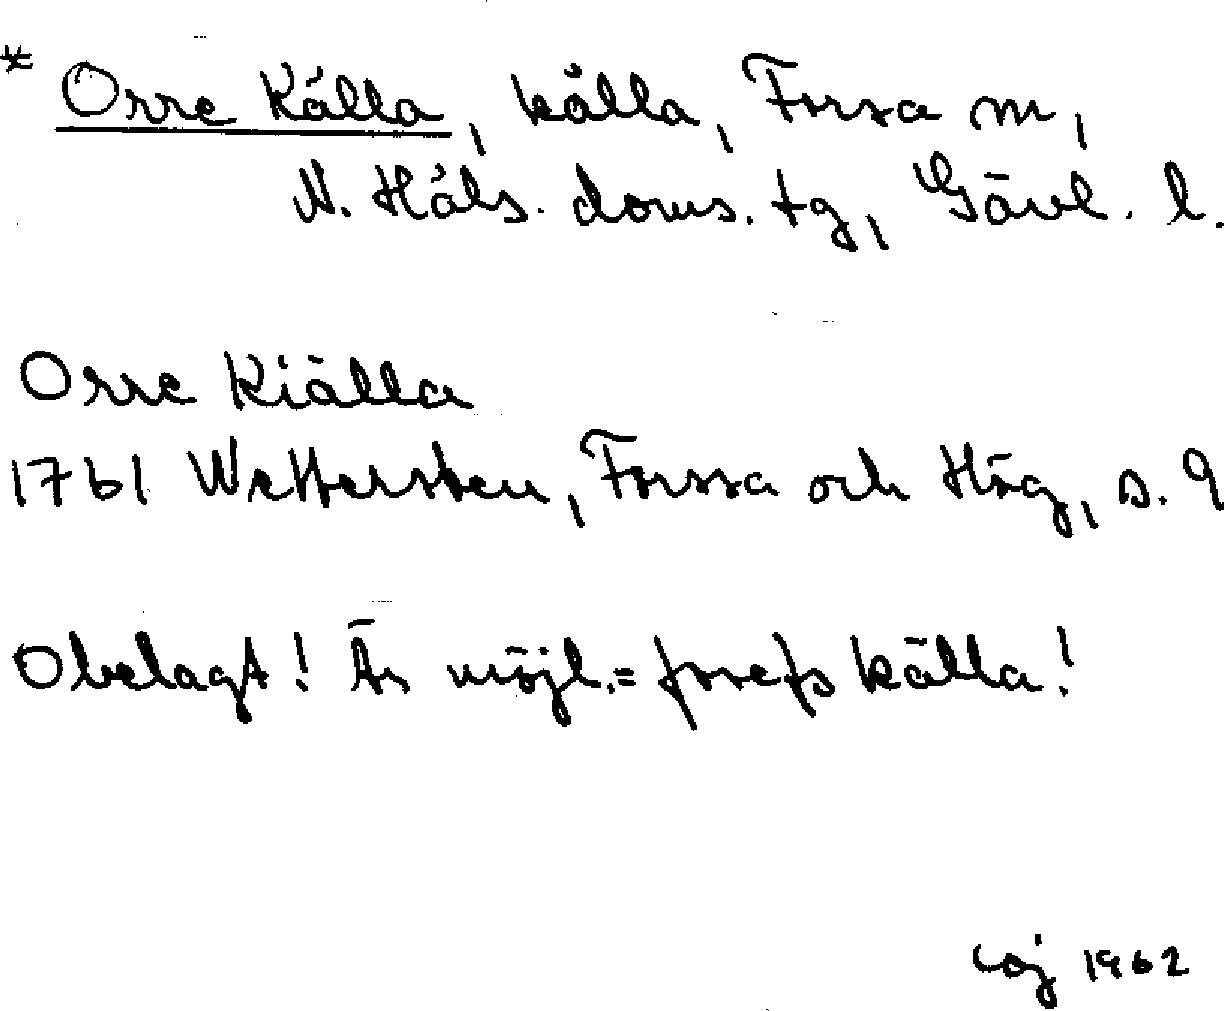 * Orre Källa, källa, Forsa sn,
N. Häls. doms. tg, Gävl. l.
Orre Kiälla
1761 Wettersten, Forssa och Hög, s. 9
Obelagt! Är möjl. = källa!
1962